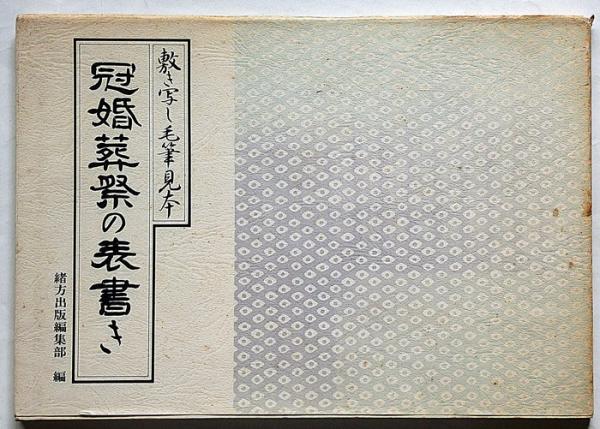 敷き写し毛筆見本
冠婚葬祭の表書き
緒方出版編集部 編